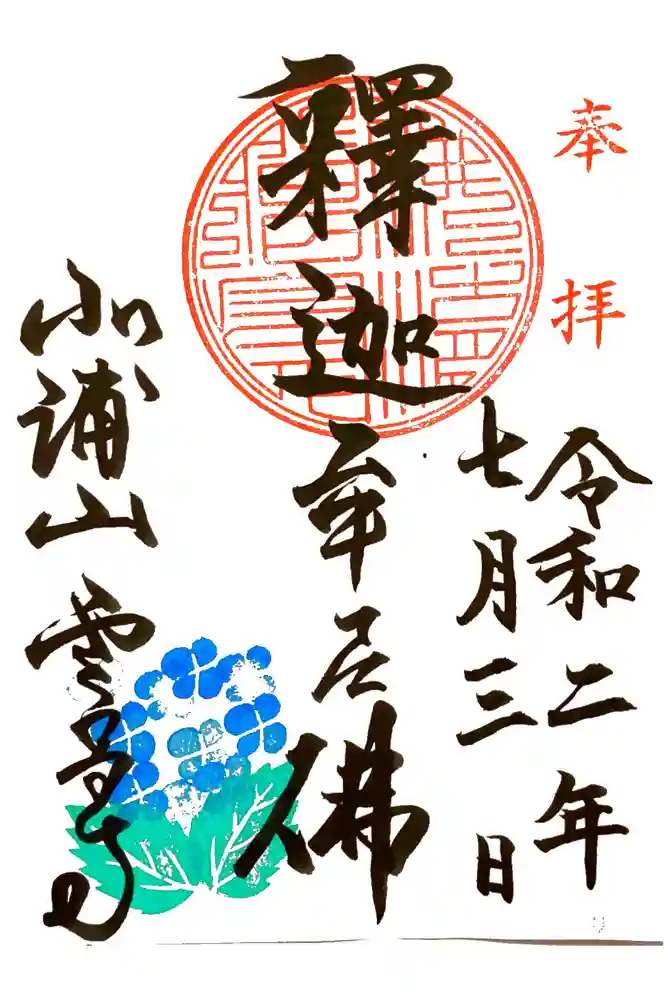 奉拝
令和二年
七月三日
釋迦牟尼佛
北浦山 雲昌寺